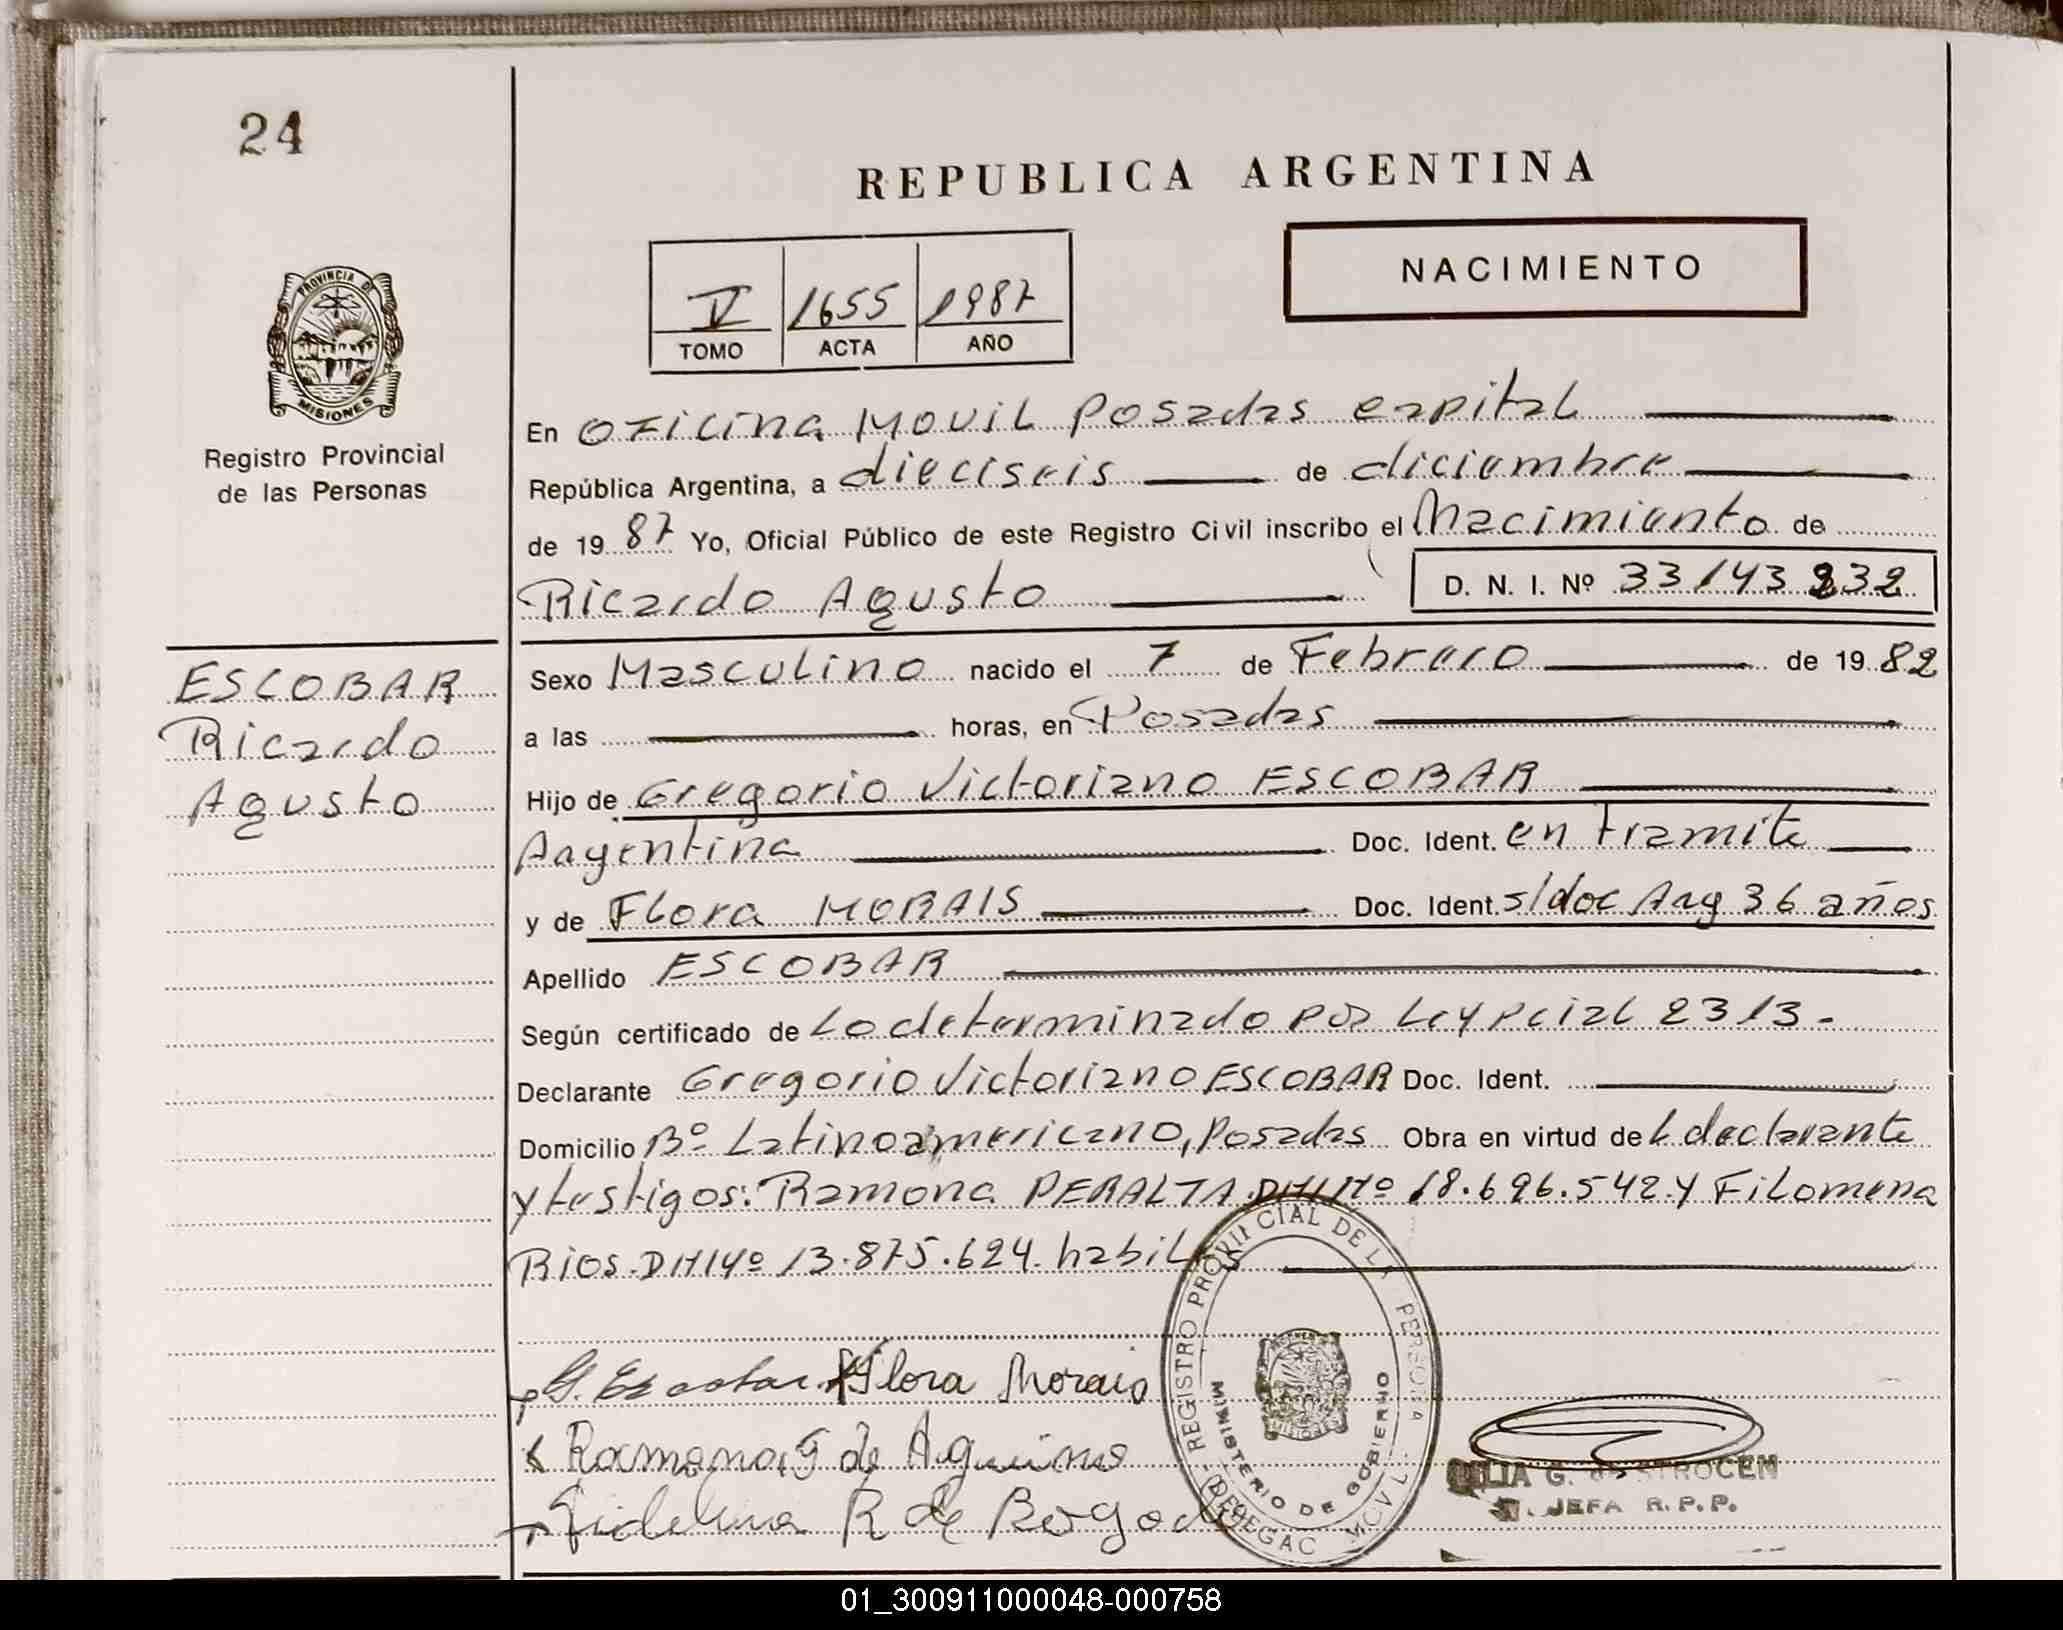 24
REPUBLICA ARGENTINA
NACIMIENTO
V 1655 1987
TOMO ACTA AÑO
PROVINCIA DE
MISIONES
Registro Provincial
de las Personas
En Oficina Movil Posadas capital
República Argentina, a dieciseis de diciembre
de 1987 Yo, Oficial Público de este Registro Civil inscribo el Nacimiento de
Ricardo Agusto D. N. I. Nº 33143232
ESCOBAR
Ricardo
Agusto
Sexo Masculino nacido el 7 de Febrero de 1982
a las horas, en Posadas
Hijo de Gregorio Victoriano ESCOBAR
Argentina Doc. Ident. en tramite
y de Flora MORAIS Doc. Ident. s/doc Arg 36 años
Apellido ESCOBAR
Según certificado de Lo determinado por Ley Pcial 2313.-
Declarante Gregorio Victoriano ESCOBAR Doc. Ident.
Domicilio Bº Latinoamericano, Posadas Obra en virtud del declarante
y testigos: Ramona PERALTA DNI Nº 18.696.542 y Filomena
Rios. DNI Nº 13.875.624. habiles
G. Escobar Flora Morais
Ramona de
R de
REGISTRO PROVINCIAL DE LA PERSONA
MINISTERIO DE GOBIERNO
DELEGAC MOVIL
G.
JEFA R.P.P.
01_300911000048-000758